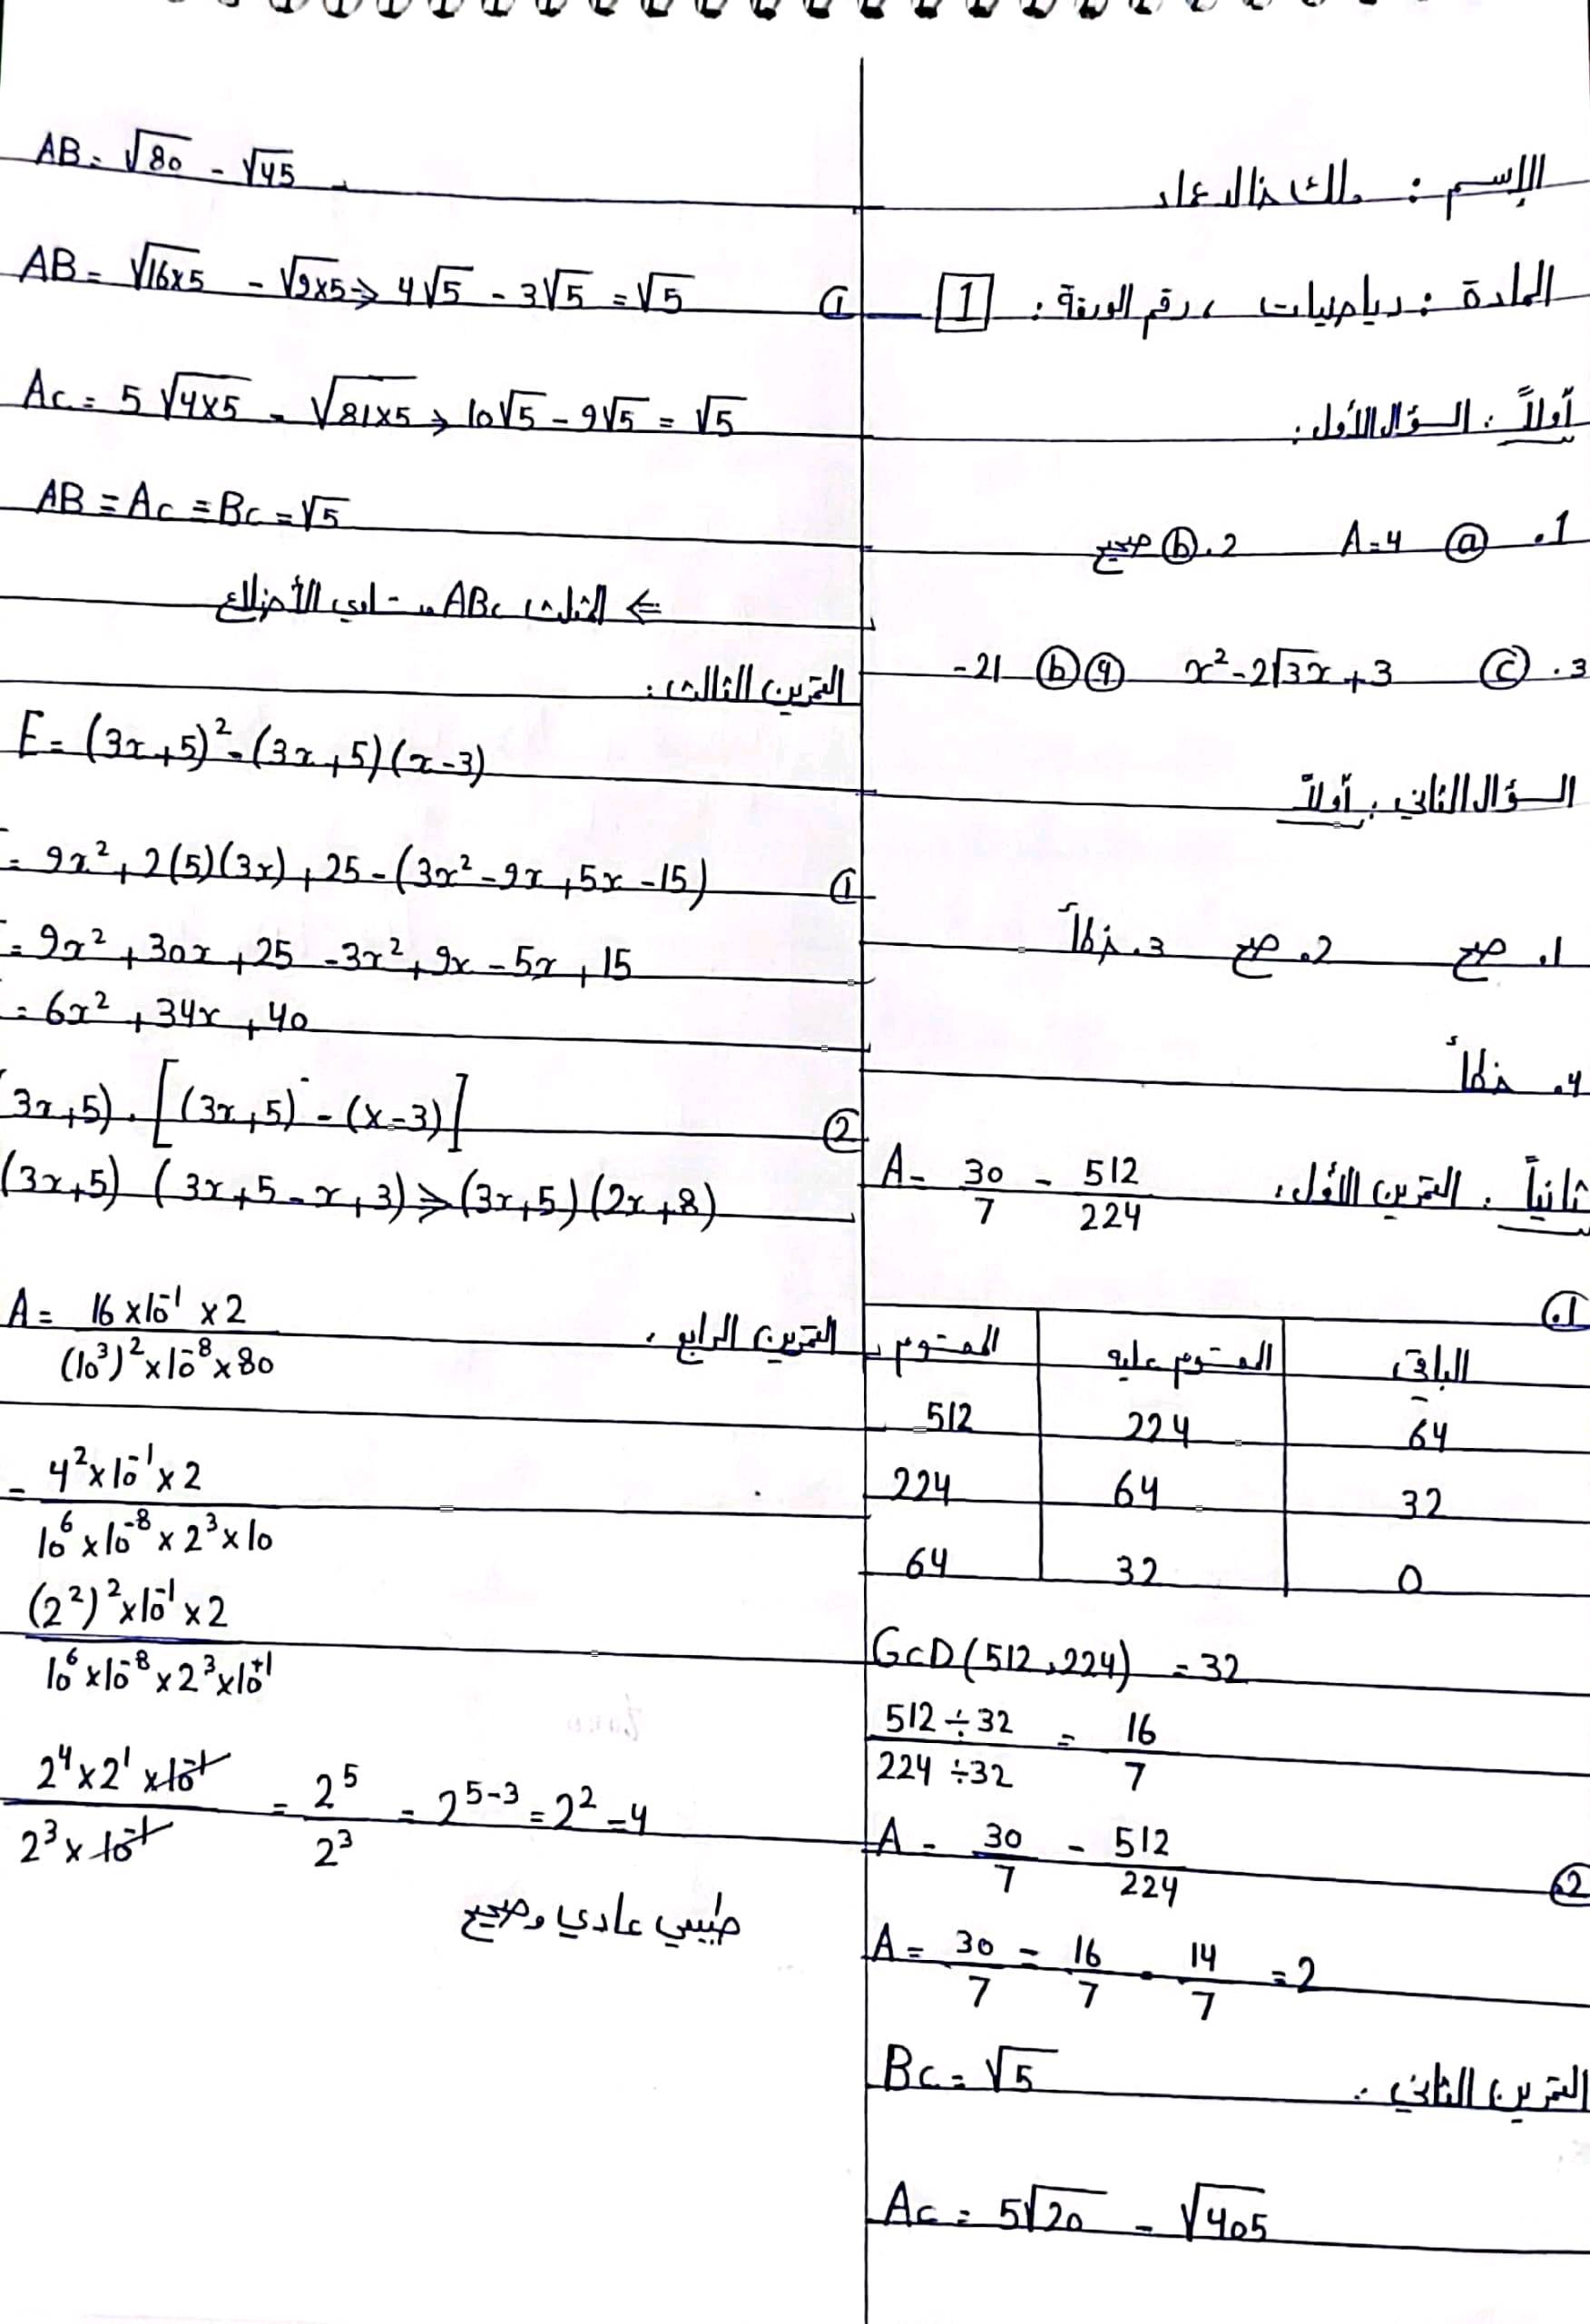 الإسم : ملك خالد عماد
المادة : رياضيات ، رقم الورقة : 1
أولاً : السؤال الأول :
1. ⓐ A=4 2. ⓑ صحيح
3. ⓒ x² - 2√3x + 3 ④ ⓑ -21
السؤال الثاني : أولاً
1. صح 2. صح 3. خطأ
4. خطأ
ثانياً : التمرين الأول: A = 30/7 - 512/224
①
المقسوم المقسوم عليه الباقي
512 224 64
224 64 32
64 32 0
GcD(512,224) = 32
512÷32 / 224÷32 = 16/7
② A = 30/7 - 512/224
A = 30/7 - 16/7 = 14/7 = 2
التمرين الثاني : Bc = √5
Ac = 5√20 - √405
AB = √80 - √45
① AB = √16×5 - √9×5 ⇒ 4√5 - 3√5 = √5
Ac = 5√4×5 - √81×5 ⇒ 10√5 - 9√5 = √5
AB = Ac = Bc = √5
⇐ المثلث ABc متساوي الأضلاع
التمرين الثالث :
E = (3x+5)² - (3x+5)(x-3)
① = 9x² + 2(5)(3x) + 25 - (3x² - 9x + 5x - 15)
= 9x² + 30x + 25 - 3x² + 9x - 5x + 15
= 6x² + 34x + 40
② (3x+5) . [(3x+5) - (x-3)]
(3x+5) (3x+5-x+3) ⇒ (3x+5)(2x+8)
التمرين الرابع : A = 16×10⁻¹×2 / (10³)²×10⁻⁸×80
= 4²×10⁻¹×2 / 10⁶×10⁻⁸×2³×10
(2²)²×10⁻¹×2 / 10⁶×10⁻⁸×2³×10⁺¹
2⁴×2¹×10⁻¹ / 2³×10⁻¹ = 2⁵/2³ = 2⁵⁻³ = 2² = 4
طبيعي عادي وصحيح